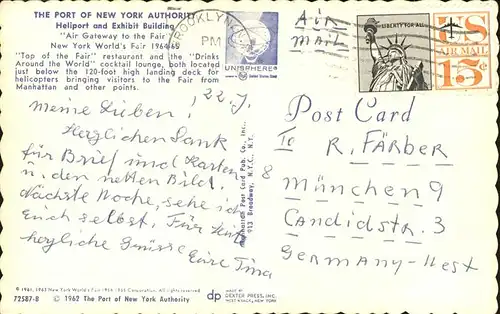 THE PORT OF NEW YORK AUTHORITY
Heliport and Exhibit Building
"Air Gateway to the Fair"
New York World's Fair 1964-65
"Top of the Fair" restaurant and the "Drinks
Around the World" cocktail lounge, both located
just below the 120-foot high landing deck for
helicopters bringing visitors to the Fair from
Manhattan and other points.
BROOKLYN, N.Y.
PM
UNISPHERE®
Air
mail
LIBERTY FOR ALL
US
AIR MAIL
15¢
22. J.
Meine Lieben!
Herzlichen Dank
für Brief und Karten
u. den netten Bild.
Nächste Woche, sehe ich
Euch selbst. Für heute
herzliche Grüsse
Eure Tina
Post Card
To
R. FÄRBER
8
München 9
Candidstr. 3
Germany-West
Manhattan Post Card Pub. Co., Inc.
913 Broadway, N.Y.C., N.Y.
© 1961, 1962 New York World's Fair 1964-1965 Corporation. All rights reserved
72587-B © 1962 The Port of New York Authority
dp
MADE BY
DEXTER PRESS, INC.
WEST NYACK, NEW YORK